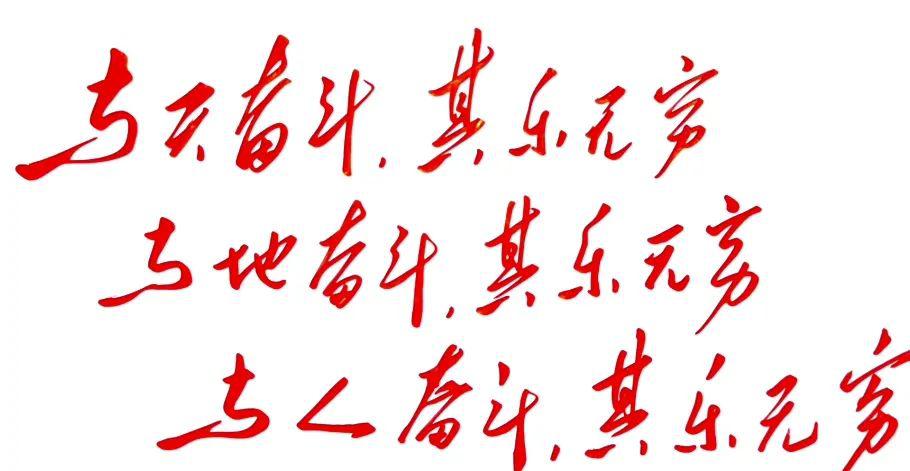 与天奋斗,其乐无穷
与地奋斗,其乐无穷
与人奋斗,其乐无穷